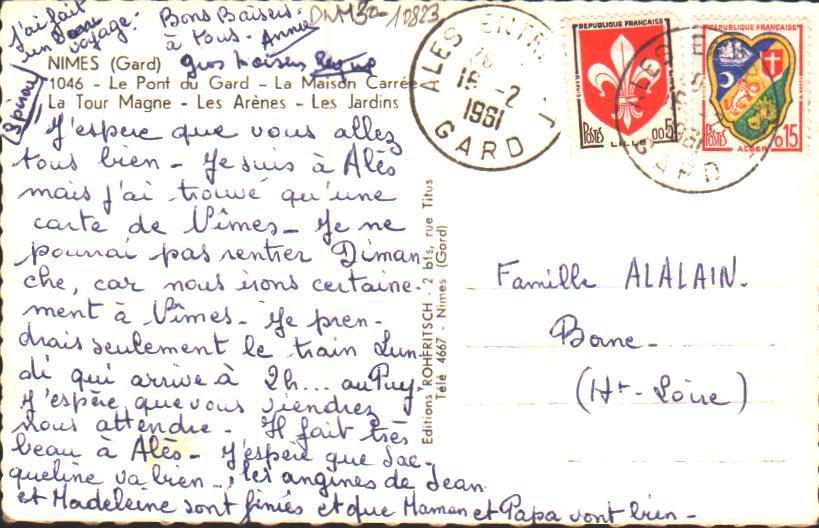 J'ai fait
un beau
voyage.
Bons Baisers
à tous. Annie
gros baisers
NIMES (Gard)
1046 - Le Pont du Gard - La Maison Carrée
La Tour Magne - Les Arènes - Les Jardins
J'espère que vous allez
tous bien - Je suis à Alès
mais j'ai trouvé qu'une
carte de Nîmes - Je ne
pourrai pas rentrer Diman-
che, car nous irons certaine-
ment à Nîmes - Je pren-
drais seulement le train Lun-
di qui arrive à 2h... au Puy.
J'espère que vous viendrez
nous attendre - Il fait très
beau à Alès - J'espère que Jac-
queline va bien -, les angines de Jean
et Madeleine sont finies et que Maman et Papa vont bien -
Editions ROHFRITSCH - 2 bis, rue Titus
Télé 4667 - Nimes (Gard)
ALES
15 -2
1961
GARD
REPUBLIQUE FRANÇAISE
POSTES LILLE 005
REPUBLIQUE FRANÇAISE
POSTES ALGER 0,15
GARD
Famille ALALAIN.
Borne -
(Hte - Loire)